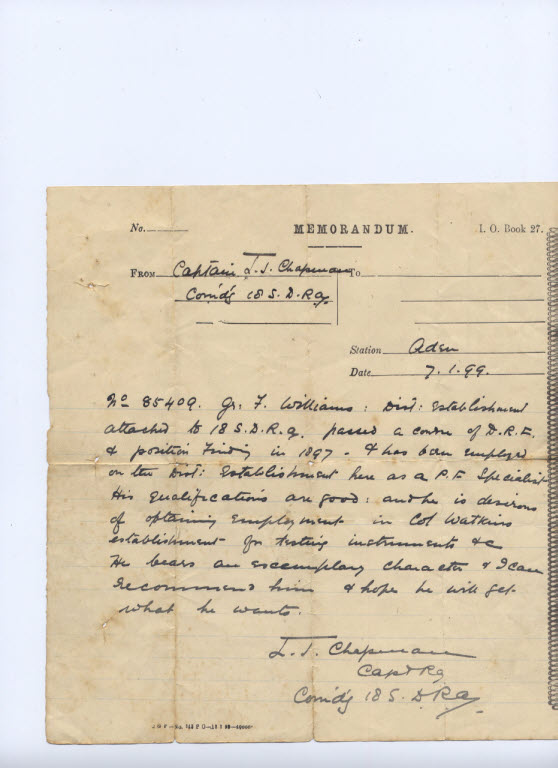 No.
MEMORANDUM.
I. O. Book 27.
FROM Captain L. J. Chapman To
Comd'g 18 S. D. R.A.
Station Aden
Date 7.1.99.
No 85409. Gr. F. Williams: Dist: Establishment
attached to 18 S.D.R.A. passed a course of D.R.F.
& position Finding in 1897. & has been employed
on the Dist: Establishment here as a P.F. Specialist
His qualifications are good: and he is desirous
of obtaining employment in Col Watkins
establishment for testing instruments &c
He bears an excemplary character & I can
recommend him & hope he will get
what he wants.
L. J. Chapman
Capt RA
Comd'g 18 S. D. R.A.